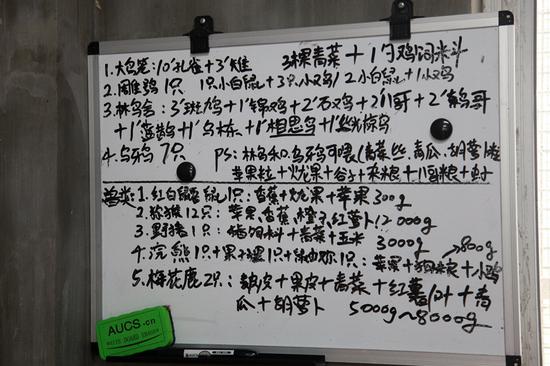 1.大鸟笼:10'孔雀+3'雉 3棵青菜+1勺鸡饲料
2.雕鸮 1只 1只小白鼠+3只小鸡/2小白鼠+1小鸡
3.林鸟舍:3'斑鸠+1'锦鸡+2'石鸡+2'八哥+2'鹩哥
+1'蓝鹊+1'乌栋+1'相思鸟+1'丝光椋鸟
4.乌鸦 7只 PS:林鸟和乌鸦可喂(青菜丝、青瓜、胡萝卜粒
苹果粒+火龙果+谷子+杂粮+八哥粮+虾
兽类:1.红白鼯鼠1只:香蕉+火龙果+苹果300g
2.猕猴12只:苹果、香蕉、橙子、红萝卜12000g
3.野猪1只:猪饲料+青菜+玉米 3000g
4.浣熊1只+果子狸1只+1只:苹果+狗粮+小鸡 800g
5.梅花鹿2只:麸皮+果皮+青菜+红薯叶+青
瓜+胡萝卜 5000g~8000g
AUCS.cn
WHITE BOARD ERASER